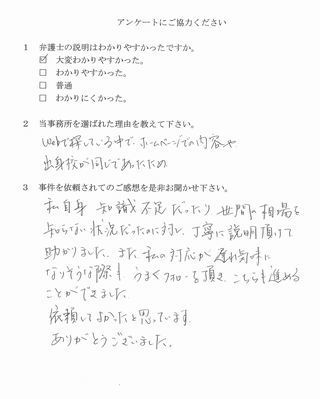 アンケートにご協力ください
1 弁護士の説明はわかりやすかったですか。
☑ 大変わかりやすかった。
□ わかりやすかった。
□ 普通
□ わかりにくかった。
2 当事務所を選ばれた理由を教えて下さい。
Webで探している中で、ホームページでの内容や
出身校が同じであったため
3 事件を依頼されてのご感想を是非お聞かせ下さい。
私自身 知識不足だったり 世間の相場を
知らない状況だったのに対し、丁寧に説明頂けて
助かりました。また 私の対応が 遅れ気味に
なりそうな際も うまくフォローを頂き、こちらも進める
ことができました。
依頼してよかったと思っています。
ありがとうございました。